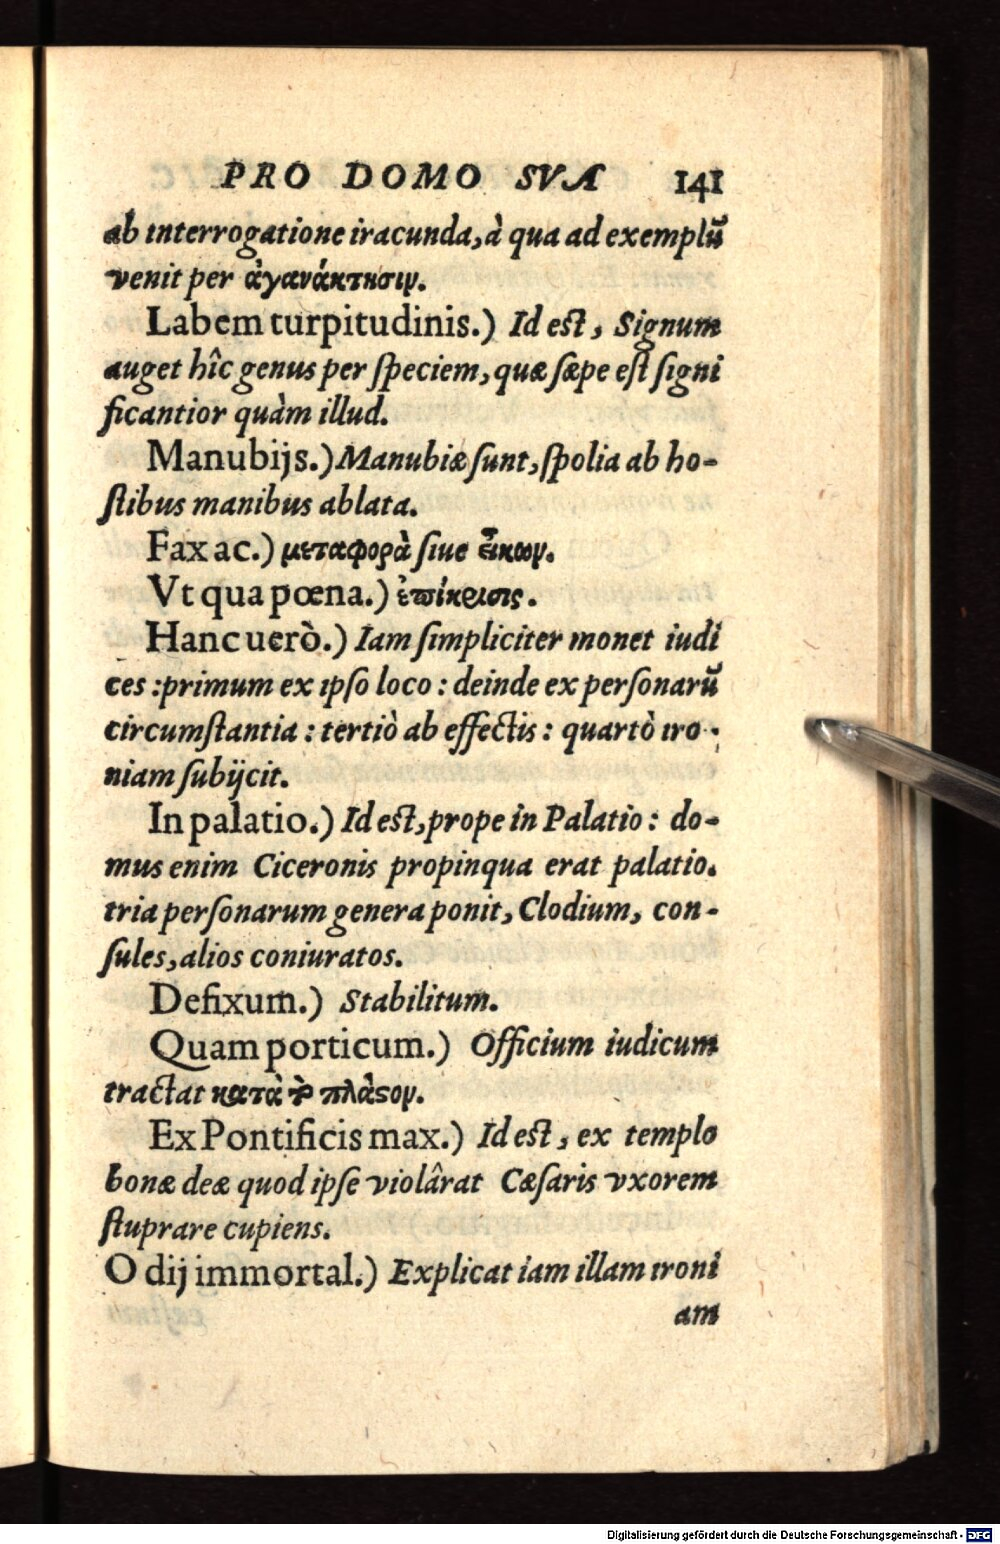 PRO DOMO SVA 141
ab interrogatione iracunda, à qua ad exemplũ
venit per ἀγανάκτησιν.
Labem turpitudinis.) Id est, Signum
auget hîc genus per speciem, quæ sæpe est signi
ficantior quàm illud.
Manubijs.) Manubiæ sunt, spolia ab ho-
stibus manibus ablata.
Fax ac.) μεταφορὰ siue εἴκων.
Vt qua pœna.) ἐπίκρισις.
Hanc uerò.) Iam simpliciter monet iudi
ces : primum ex ipso loco : deinde ex personarũ
circumstantia : tertiò ab effectis : quartò iro-
niam subijcit.
In palatio.) Id est, prope in Palatio : do-
mus enim Ciceronis propinqua erat palatio.
tria personarum genera ponit, Clodium, con-
sules, alios coniuratos.
Defixum.) Stabilitum.
Quam porticum.) Officium iudicum
tractat κατὰ τὸ πλὰϛον.
Ex Pontificis max.) Id est, ex templo
bonæ deæ quod ipse violârat Cæsaris vxorem
stuprare cupiens.
O dij immortal.) Explicat iam illam ironi
am
Digitalisierung gefördert durch die Deutsche Forschungsgemeinschaft - DFG